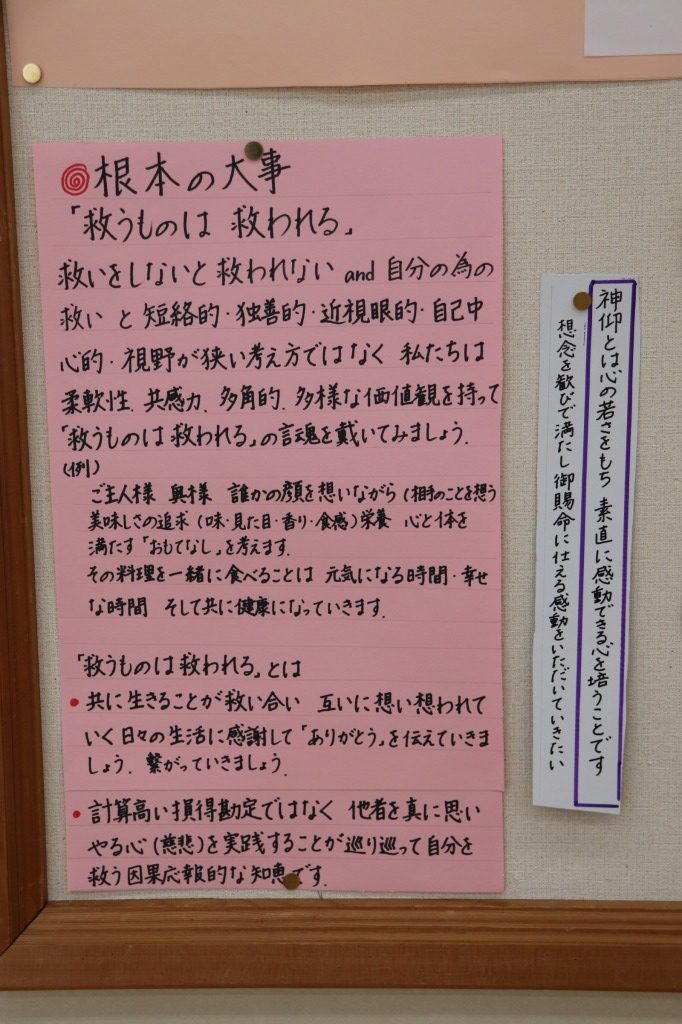 根本の大事
「救うものは 救われる」
救いをしないと救われない and 自分の為の
救い と 短絡的・独善的・近視眼的・自己中
心的・視野が狭い考え方ではなく 私たちは
柔軟性、共感力、多角的、多様な価値観を持って
「救うものは救われる」の言魂を戴いてみましょう。
(例)
ご主人様 奥様 誰かの顔を想いながら (相手のことを想う
美味しさの追求 (味・見た目・香り・食感) 栄養 心と体を
満たす「おもてなし」を考えます。
その料理を一緒に食べることは 元気になる時間・幸せ
な時間 そして共に健康になっていきます。
「救うものは救われる」とは
・共に生きることが救い合い 互いに想い想われて
いく日々の生活に感謝して「ありがとう」を伝えていきま
しょう。繋がっていきましょう。
・計算高い損得勘定ではなく 他者を真に思い
やる心 (慈悲) を実践することが巡り巡って自分を
救う因果応報的な知恵です。
神仰とは心の若さをもち 素直に感動できる心を培うことです
想念を歓びで満たし御賜命に仕える感動をいただいていきたい